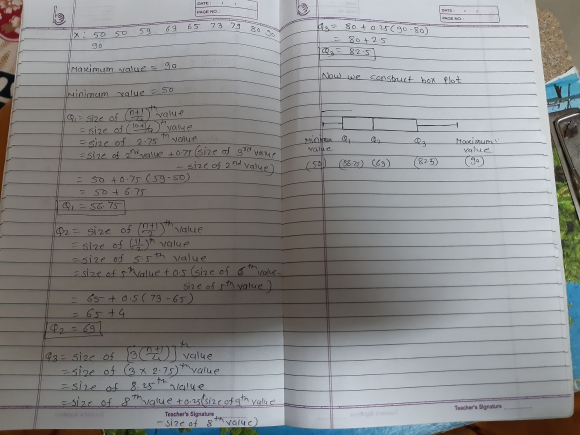 DATE :
PAGE NO.:
x: 50 50 59 63 65 73 79 80 90
90
Maximum value = 90
Minimum value = 50
Q1 = size of (n+1/4)th value
= size of (10+1/4)th value
= size of 2.75th value
= size of 2nd value + 0.75 (size of 3rd value
- size of 2nd value)
= 50 + 0.75 (59-50)
= 50 + 6.75
Q1 = 56.75
Q2 = size of (n+1/2)th value
= size of (11/2)th value
= size of 5.5th value
= size of 5th value + 0.5 (size of 6th value -
size of 5th value)
= 65 + 0.5 (73-65)
= 65 + 4
Q2 = 69
Q3 = size of [3(n+1/4)]th value
= size of (3 x 2.75)th value
= size of 8.25th value
= size of 8th value + 0.25 (size of 9th value
Teacher's Signature
- size of 8th value)
DATE :
PAGE NO.:
Q3 = 80 + 0.25 (90-80)
= 80 + 2.5
Q3 = 82.5
Now we construct box plot
Q1 Q2 Q3 Maximum
value value
(50) (56.75) (69) (82.5) (90)
Teacher's Signature